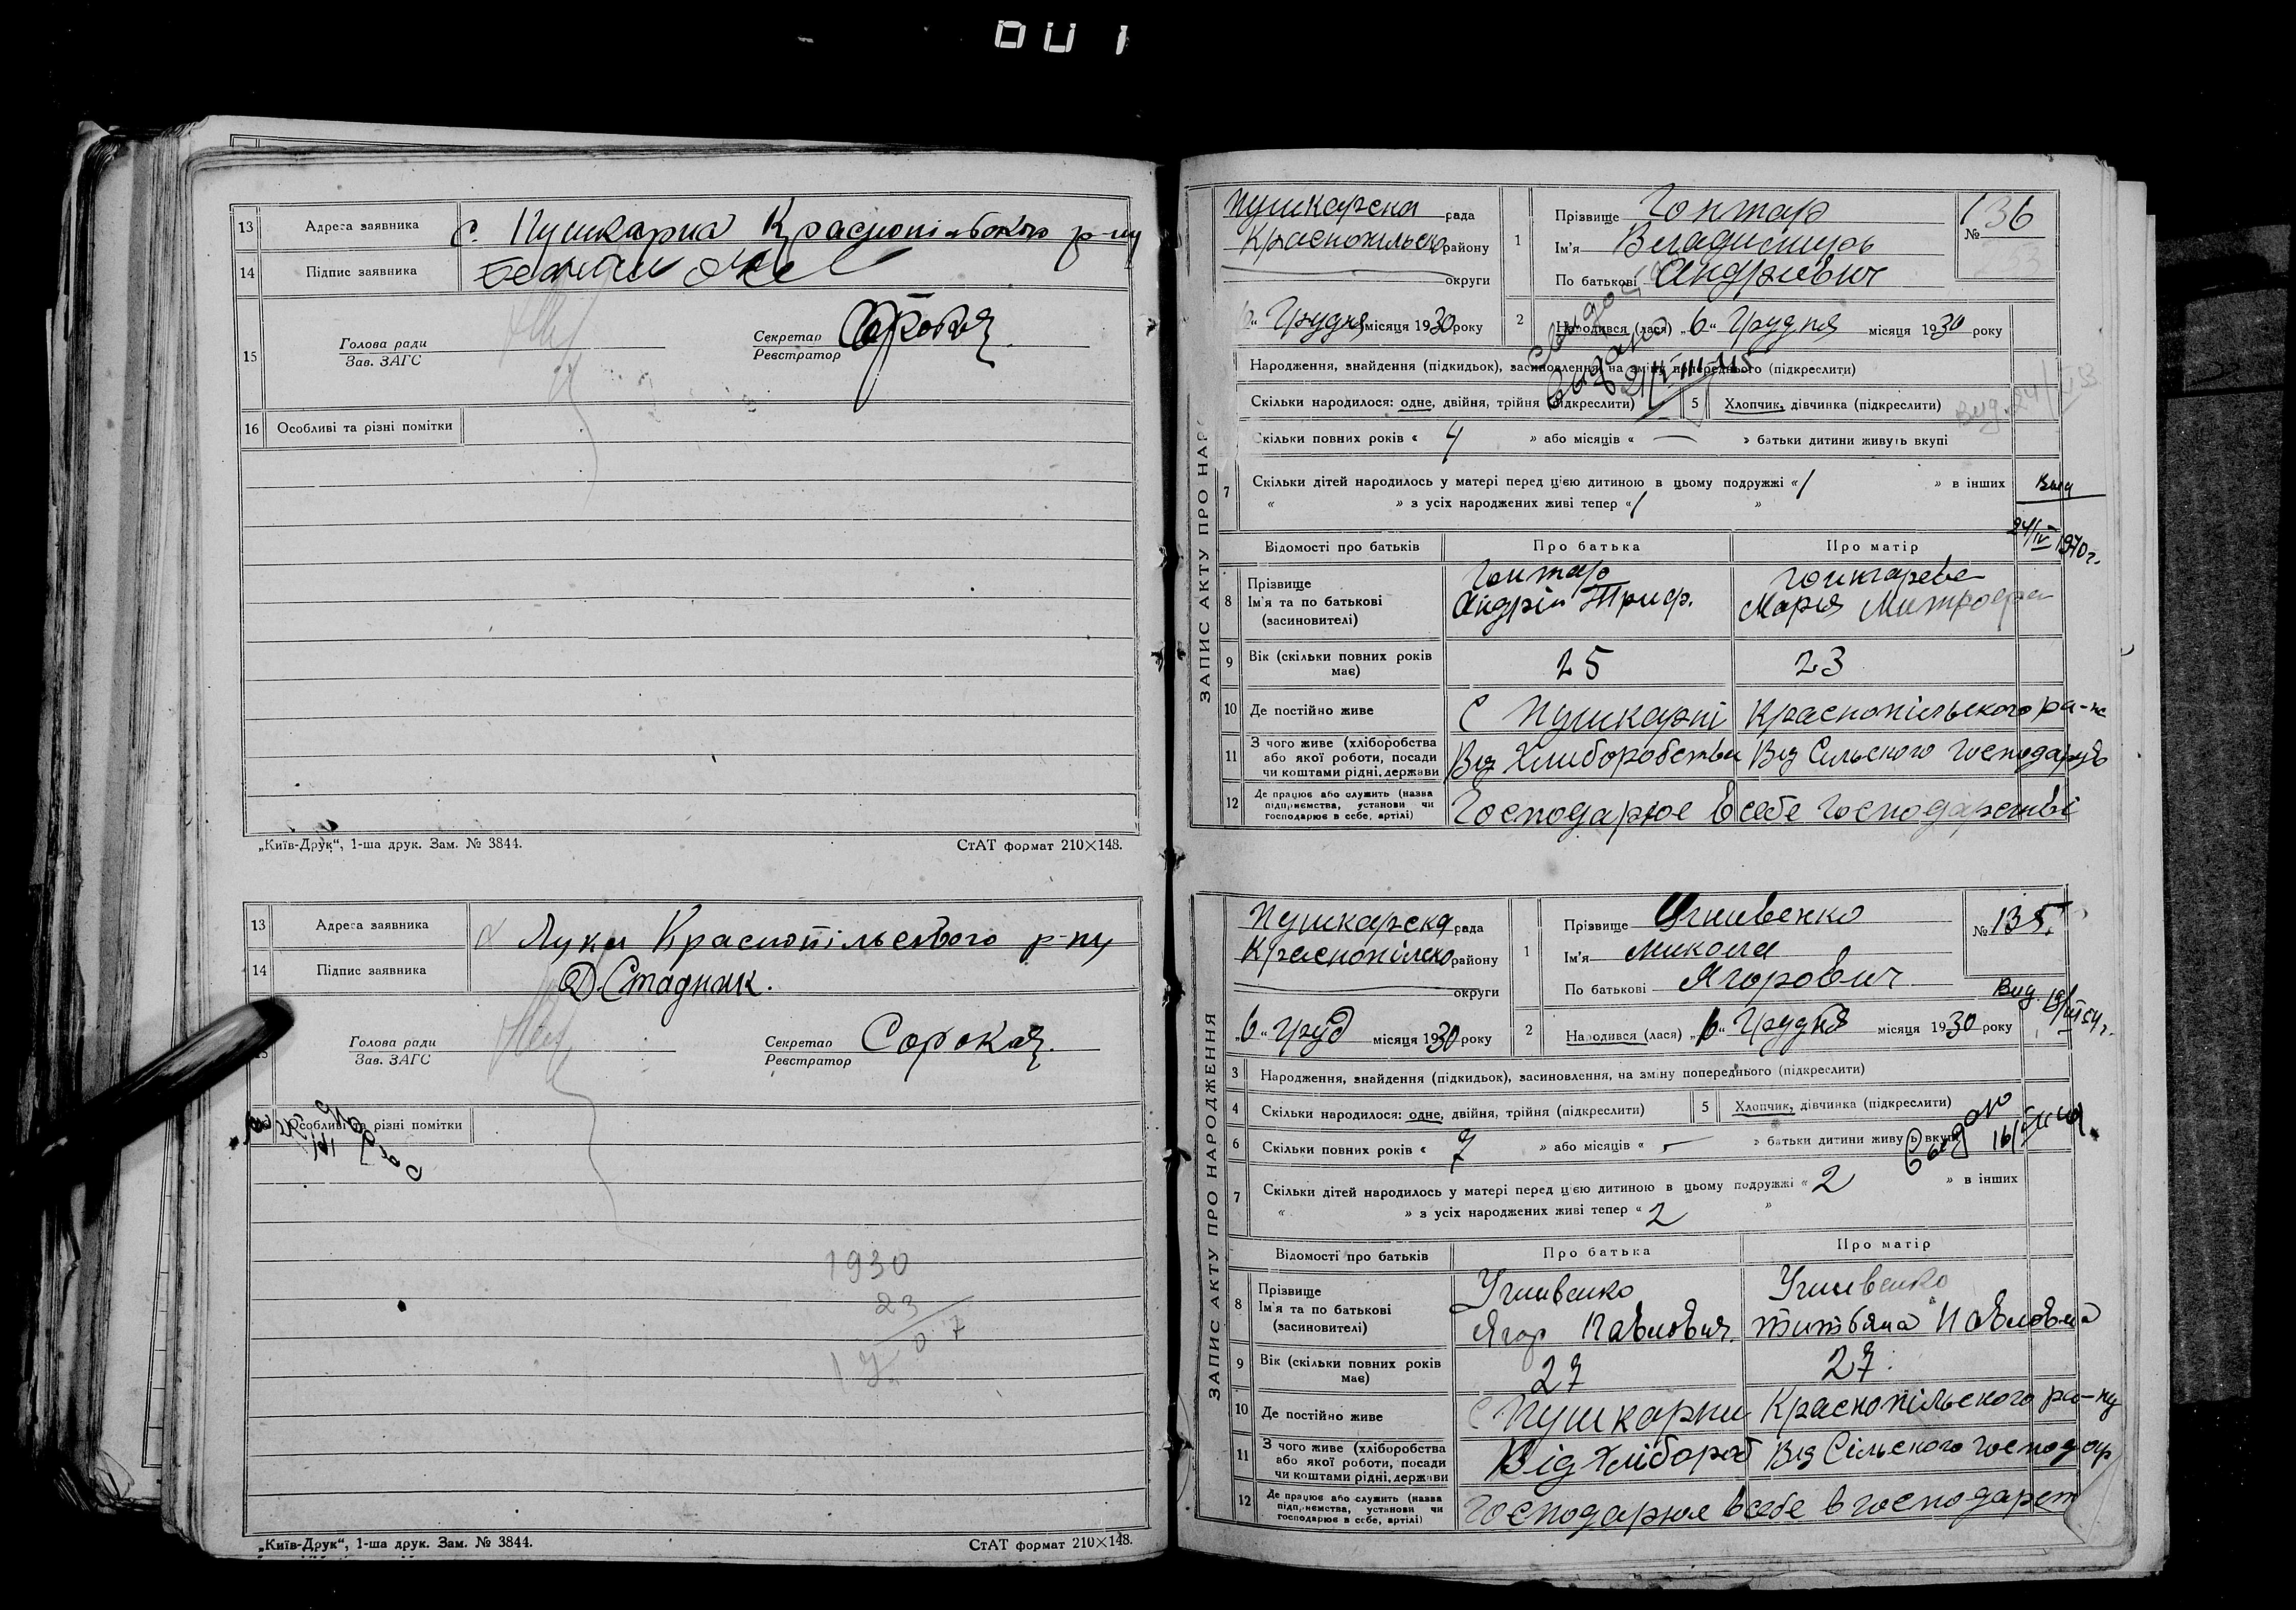 13 Адреса заявника с. Пушкарна Краснопільського р-ну
14 Підпис заявника
15 Голова ради
Зав. ЗАГС
Секретар
Реєстратор
16 Особливі та різні помітки
„Київ-Друк“, 1-ша друк. Зам. № 3844. СтАТ формат 210×148.
13 Адреса заявника Луки Краснопільського р-ну
14 Підпис заявника Д. Стадник.
Голова ради
Зав. ЗАГС
Секретар
Реєстратор
Сорокая
Особливі та різні помітки
1930
23
1907
„Київ-Друк“, 1-ша друк. Зам. № 3844. СтАТ формат 210×148.
ЗАПИС АКТУ ПРО НАР
Пушкарська рада
Краснопільсько району
округи
6 „ Грудня місяця 1930 року
1 Прізвище Гонтар
Ім'я Владимирь
По батькові Андрієвич
№ 136
2 Народився (лася) „ 6 “ Грудня місяця 1930 року
Народження, знайдення (підкидьок), засиновлення, на зміну попереднього (підкреслити)
Скільки народилося: одне, двійня, трійня (підкреслити) 5 Хлопчик, дівчинка (підкреслити)
Скільки повних років « 4 » або місяців « — » батьки дитини живуть вкупі
7 Скільки дітей народилось у матері перед цією дитиною в цьому подружжі « 1 » в інших
« » з усіх народжених живі тепер « 1 »
Выд
24/IV 1970 г.
Відомості про батьків Про батька Про матір
8 Прізвище
Ім'я та по батькові
(засиновителі)
Гонтар
Андрій Триф.
Гонтарева
Марія Митрофа
9 Вік (скільки повних років має) 25 23
10 Де постійно живе С Пушкарні Краснопільского ра-н
11 З чого живе (хліборобства або якої роботи, посади чи коштами рідні, держави Від Хлиборобства Від Сільского Господарув
12 Де працює або служить (назва підприємства, установи чи господарює в себе, артілі) Господарює в себе господарстві
ЗАПИС АКТУ ПРО НАРОДЖЕННЯ
Пушкарска рада
Краснопілско району
округи
„ 6 “ Груд місяця 1930 року
1 Прізвище Угнивенко
Ім'я Микола
По батькові Ягорович
№ 135.
Вид. 19/III 54 г.
2 Народився (лася) „ 6 “ Грудня місяця 1930 року
3 Народження, знайдення (підкидьок), засиновлення, на зміну попереднього (підкреслити)
4 Скільки народилося: одне, двійня, трійня (підкреслити) 5 Хлопчик, дівчинка (підкреслити)
6 Скільки повних років « 7 » або місяців « - » батьки дитини живуть вкупі
7 Скільки дітей народилось у матері перед цією дитиною в цьому подружжі « 2 » в інших
« » з усіх народжених живі тепер « 2 »
Відомості про батьків Про батька Про матір
8 Прізвище
Ім'я та по батькові
(засиновителі)
Угнивенко
Ягор Павлович.
Угнивенко
Титьяна Павловна
9 Вік (скільки повних років має) 27 27.
10 Де постійно живе С Пушкарни Краснопільского ра-ну
11 З чого живе (хліборобства або якої роботи, посади чи коштами рідні, держави Від Хлібороб Від Сільского господар
12 Де працює або служить (назва підприємства, установи чи господарює в себе, артілі) Господарює в себе в господарст